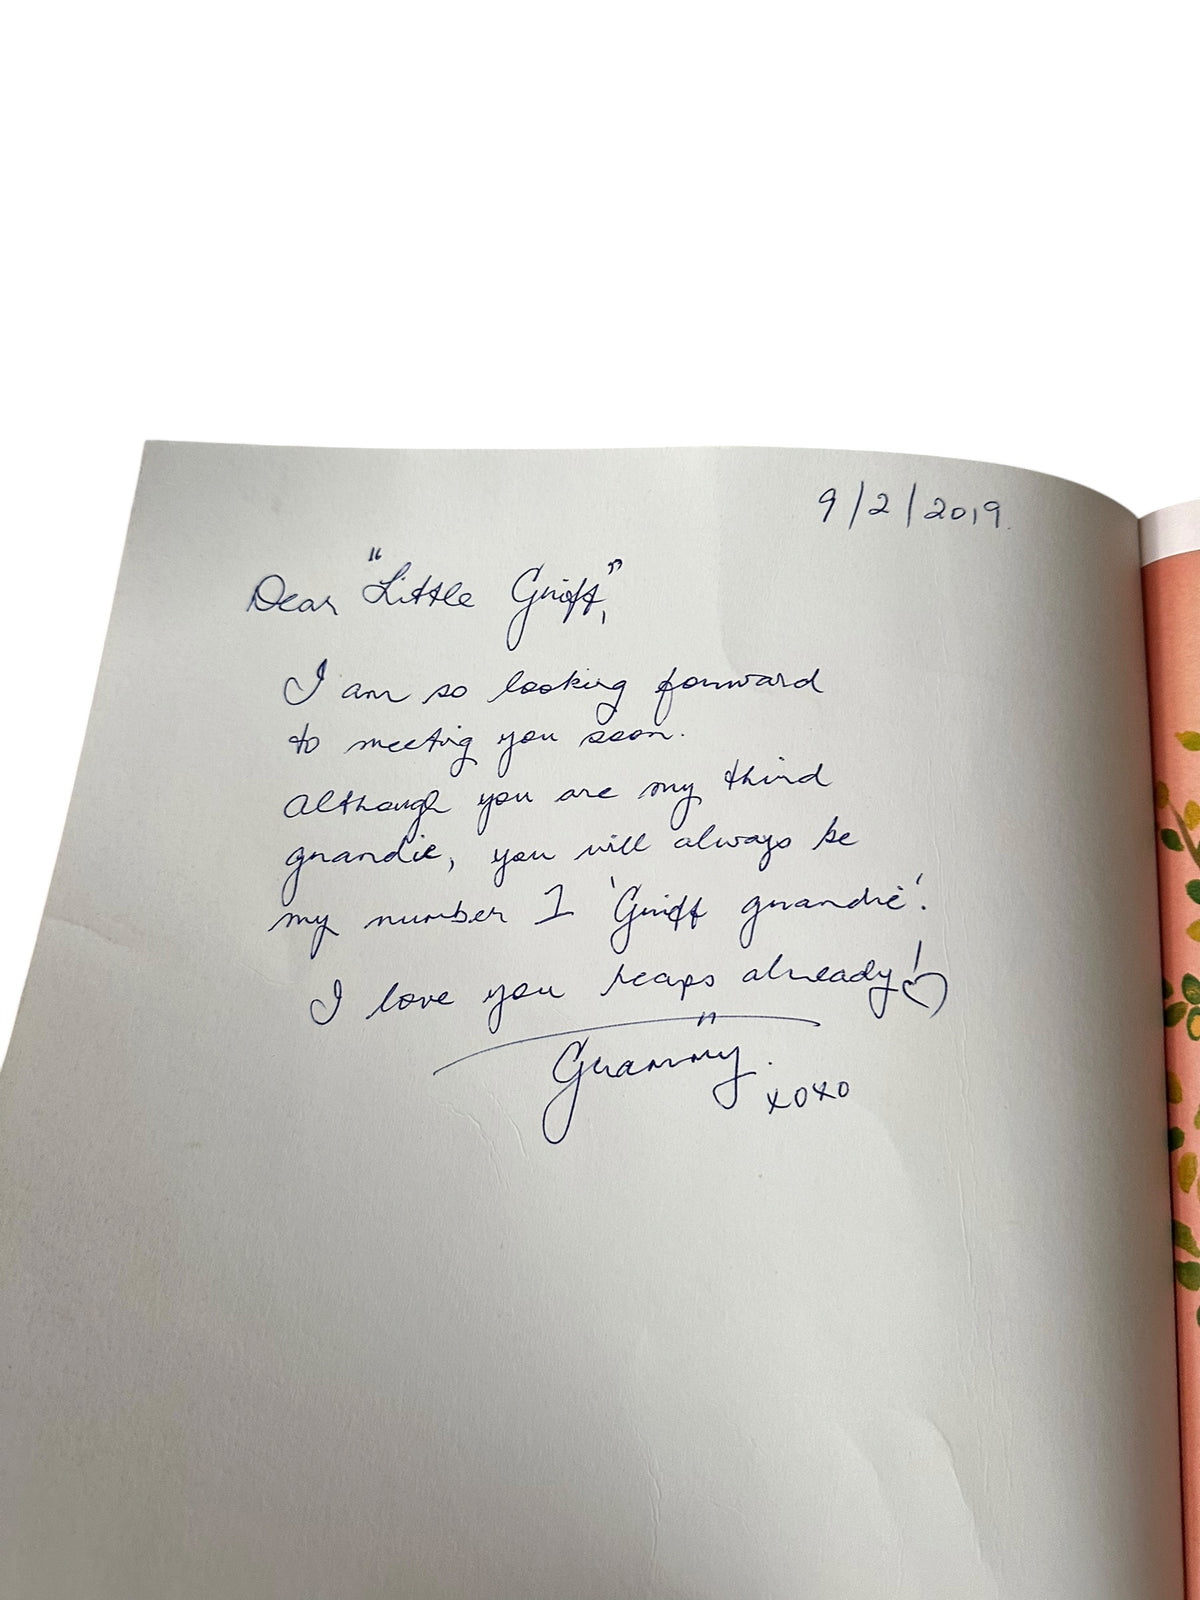 9/2/2019.
Dear "Little Griff",
I am so looking forward
to meeting you soon.
Although you are my third
grandie, you will always be
my number 1 'Griff grandie'.
I love you heaps already! ♡
"Grammy".
xoxo